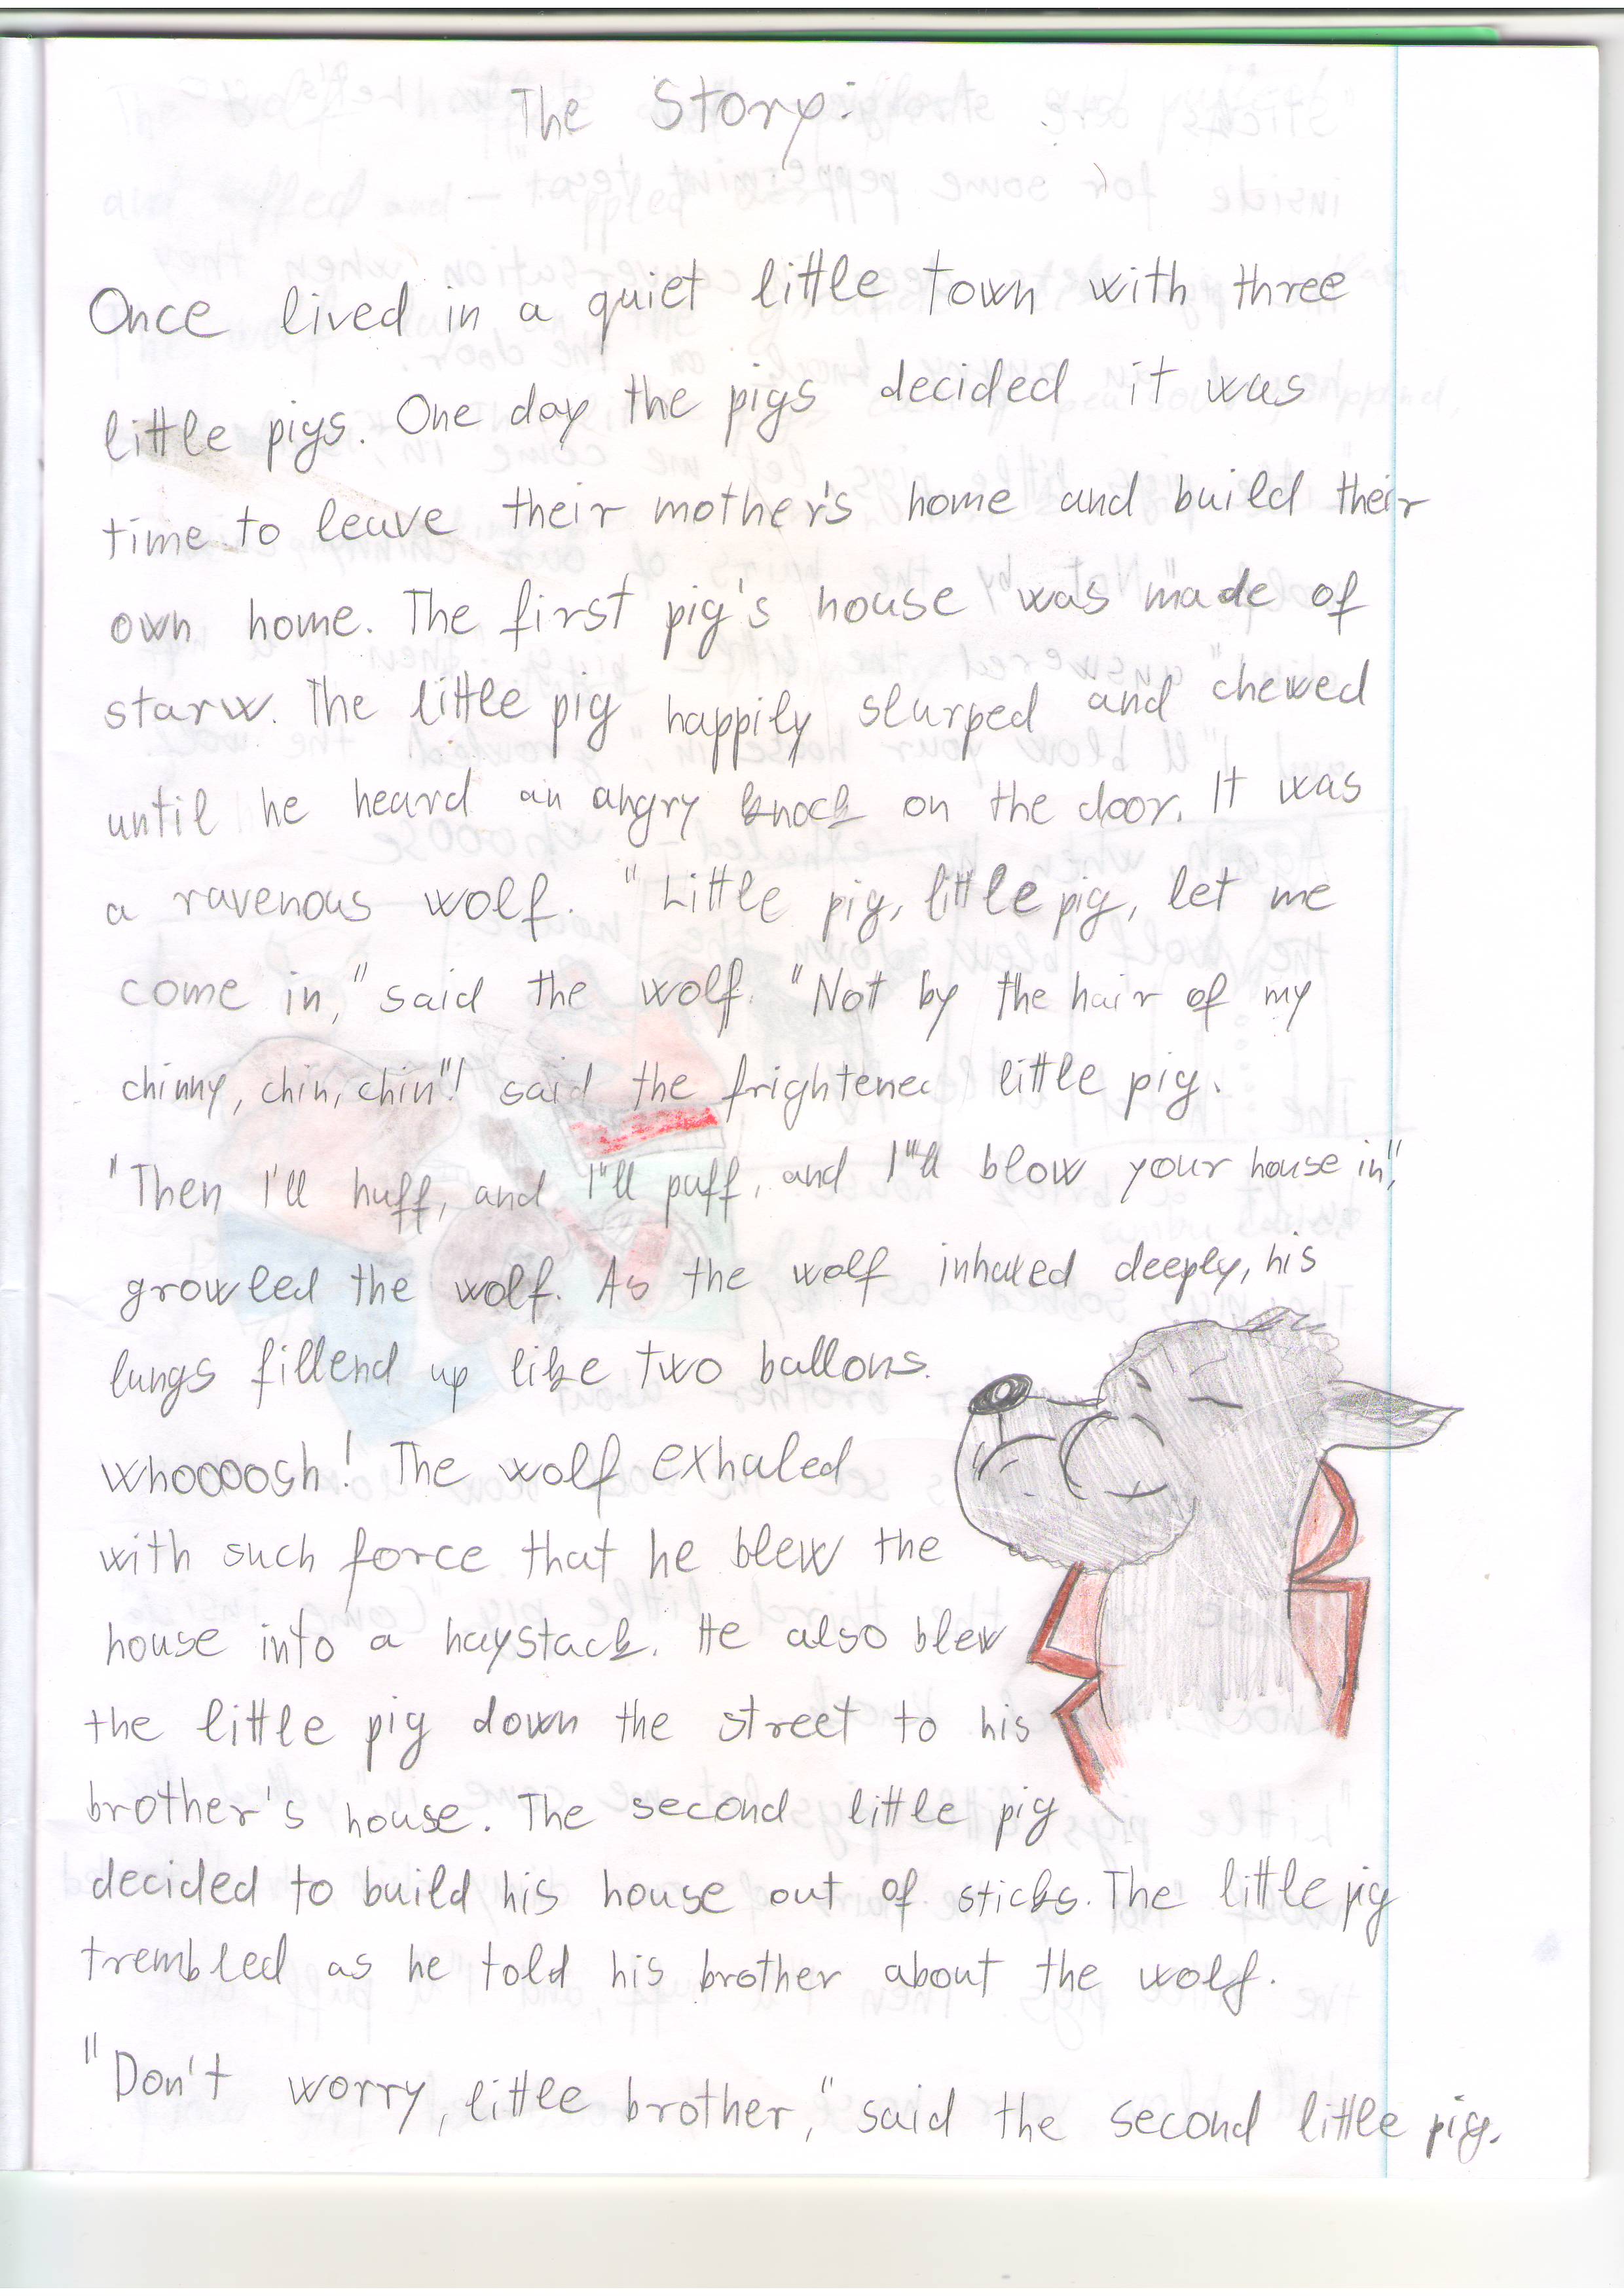 The Story:
Once lived in a quiet little town with three
little pigs. One day the pigs decided it was
time to leave their mother's home and build their
own home. The first pig's house was made of
starw. The little pig happily slurped and chewed
until he heard an angry knock on the door. It was
a ravenous wolf. "Little pig, little pig, let me
come in," said the wolf. "Not by the hair of my
chinny, chin, chin"! said the frightened little pig.
"Then I'll huff, and I'll puff, and I'll blow your house in",
growled the wolf. As the wolf inhaled deeply, his
lungs fillend up like two ballons.
whoooosh! The wolf exhaled
with such force that he blew the
house into a haystack. He also blew
the little pig down the street to his
brother's house. The second little pig
decided to build his house out of sticks. The little pig
trembled as he told his brother about the wolf.
"Don't worry, little brother," said the second little pig.